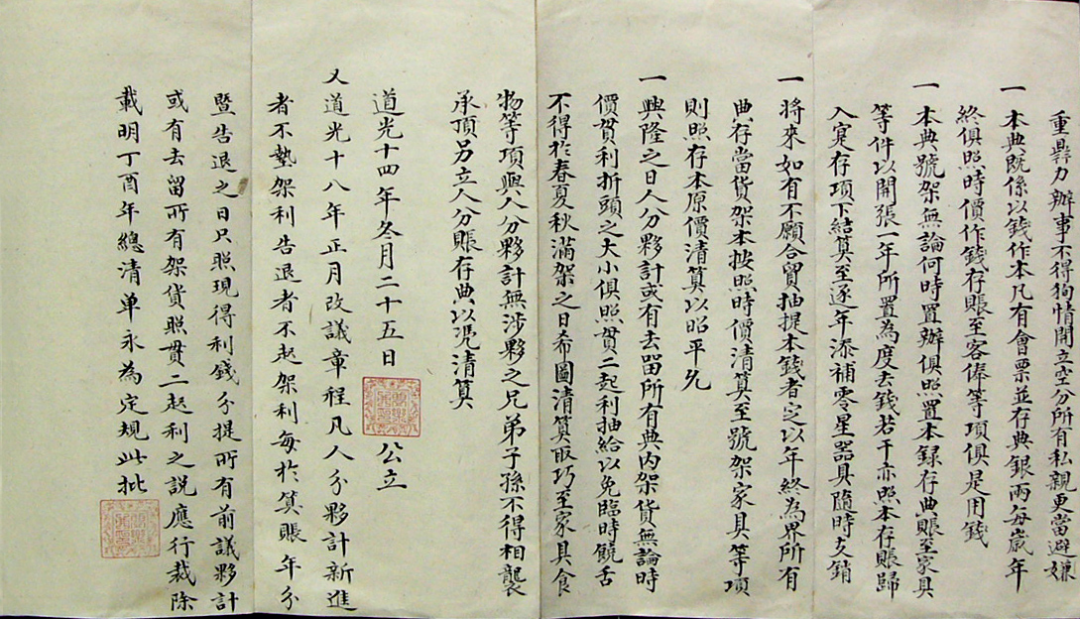 重鼎力辦事不得狥情開立空分所有私親更當避嫌
一本典既係以錢作本凡有會票並存典銀兩每歲年
終俱照時價作錢存賬至客俸等項俱是用錢
一本典號架無論何時置辦俱照置本錄存典賬至家具
等件以開張一年所置為度去錢若干亦照本存賬歸
入寔存項下結算至逐年添補零星器具隨時支銷
一將來如有不願合貿抽提本錢者定以年終為界所有
典存當貨架本按照時價清算至號架家具等項
則照存本原價清算以昭平允
一興隆之日人分夥計或有去留所有典內架貨無論時
價貫利折頭之大小俱照貫二起利抽給以免臨時饒舌
不得於春夏秋滿架之日希圖清算取巧至家具食
物等項與人分夥計無涉夥之兄弟子孫不得相襲
承頂另立人分賬存典以凴清算
道光十四年冬月二十五日 公立
又道光十八年正月改議章程凡人分夥計新進
者不墊架利告退者不起架利每於算賬年分
暨告退之日只照現得利錢分提所有前議夥計
或有去留所有架貨照貫二起利之說應行裁除
載明丁酉年總清单永為定規此批